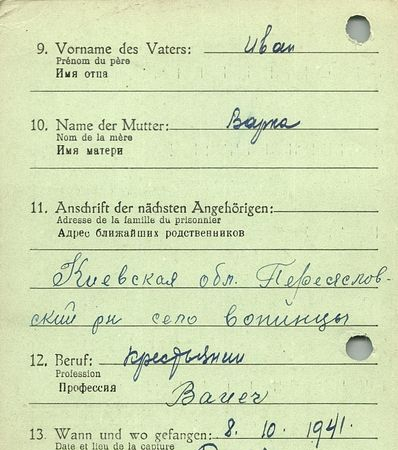 9. Vorname des Vaters: Иван
Prénom du père
Имя отца
10. Name der Mutter: Варка
Nom de la mère
Имя матери
11. Anschrift der nächsten Angehörigen:
Adresse de la famille du prisonnier
Адрес ближайших родственников
Киевская обл. Переяслов-
ский рн село вопинцы
12. Beruf: крестьянин
Profession
Профессия Bauer
13. Wann und wo gefangen: 8. 10. 1941.
Date et lieu de la capture